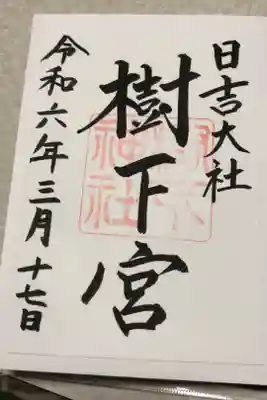 日吉大社
樹下宮
令和六年三月十七日